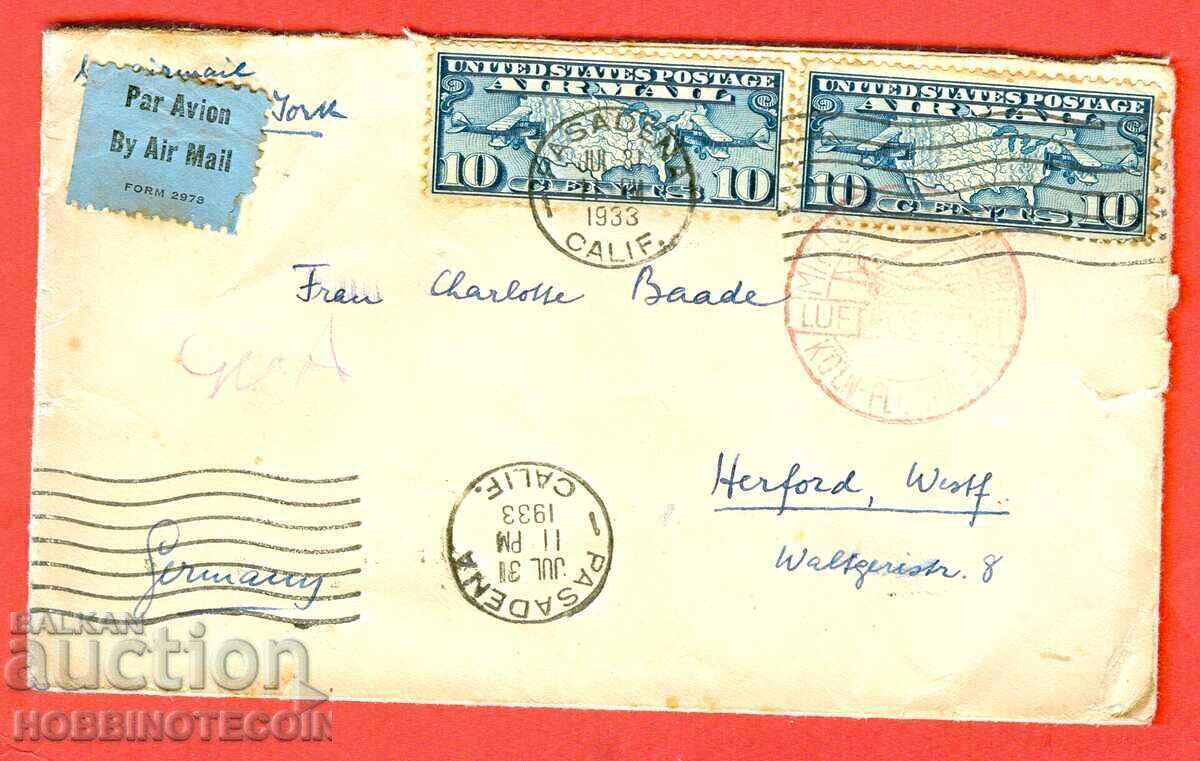 airmail
York
Par Avion
By Air Mail
FORM 2978
UNITED STATES POSTAGE
AIRMAIL
10 CENTS 10
UNITED STATES POSTAGE
AIRMAIL
10 CENTS 10
PASADENA
JUL 31
PM
1933
CALIF.
Frau Charlotte Baade
LUFT
KÖLN
Herford, Westf.
Waltgeristr. 8
PASADENA
JUL 31
11 PM
1933
CALIF.
Germany
BALKAN
auction
HOBBINOTECOIN